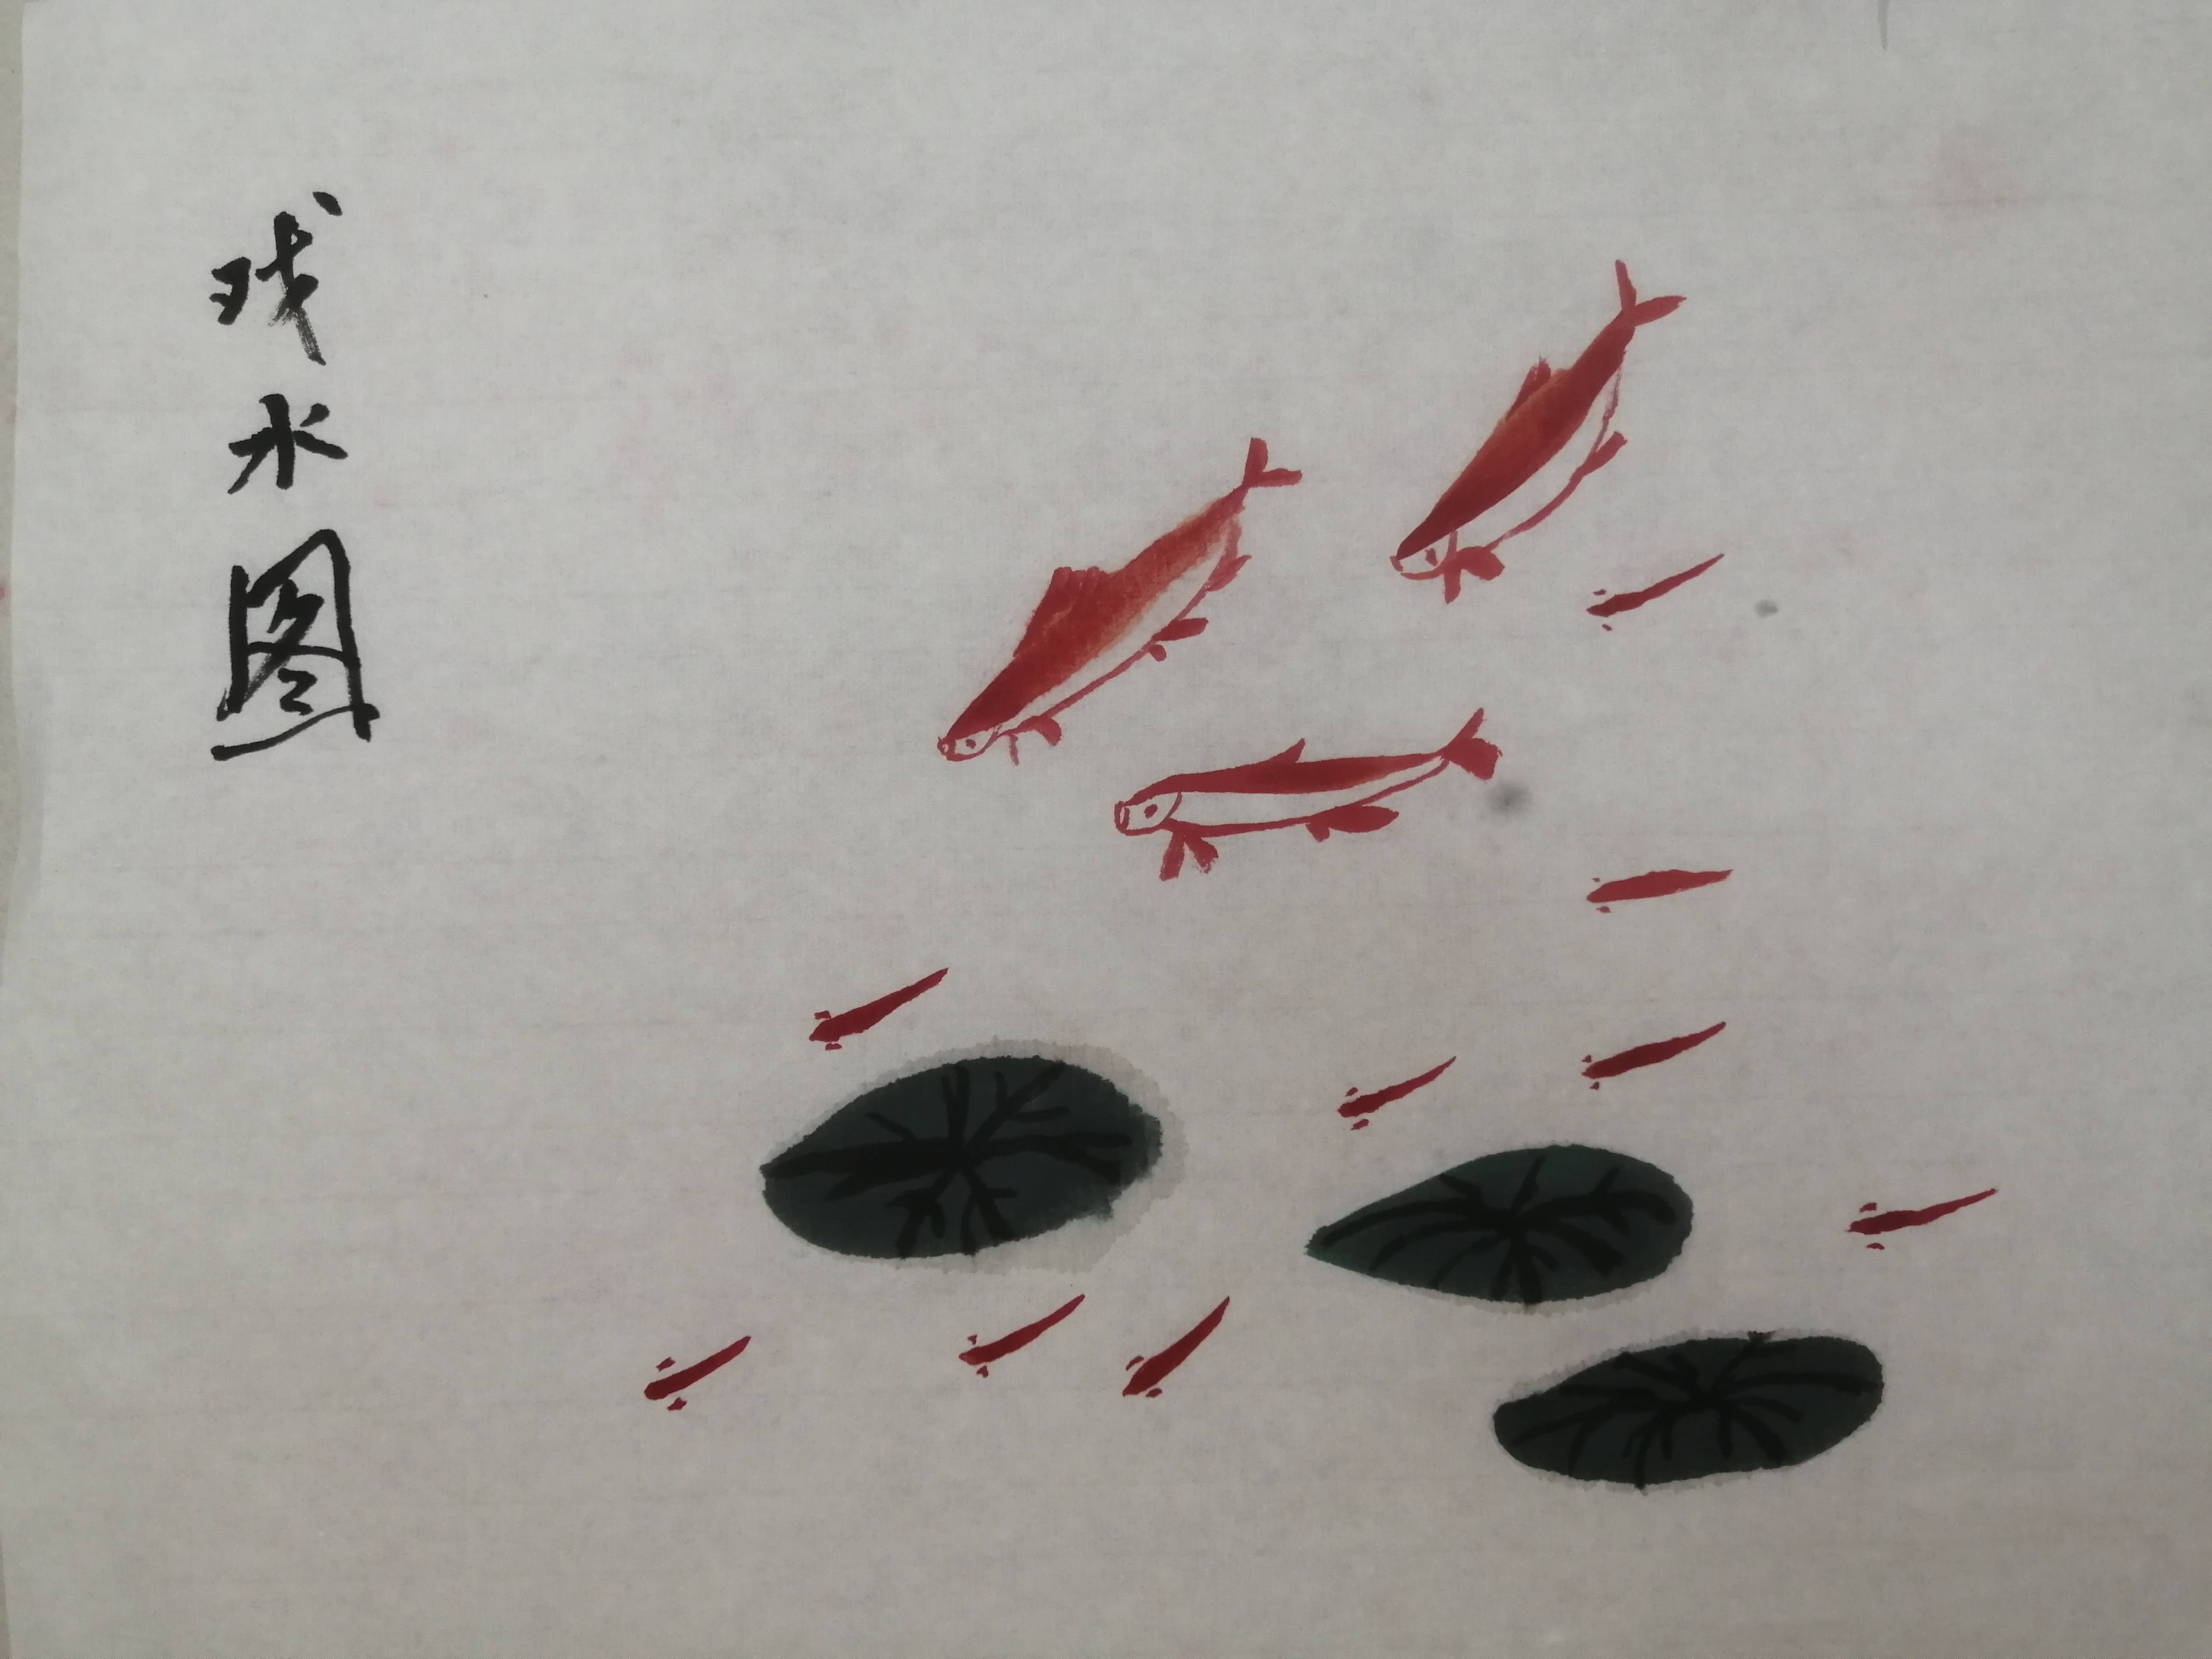 戏水图